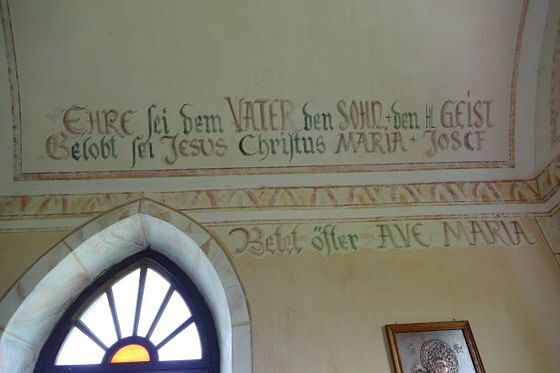 EHRE sei dem VATER den SOHN + den H. GEIST
Gelobt sei JESUS Christus MARIA + JOSEF
Betet öfter AVE MARIA